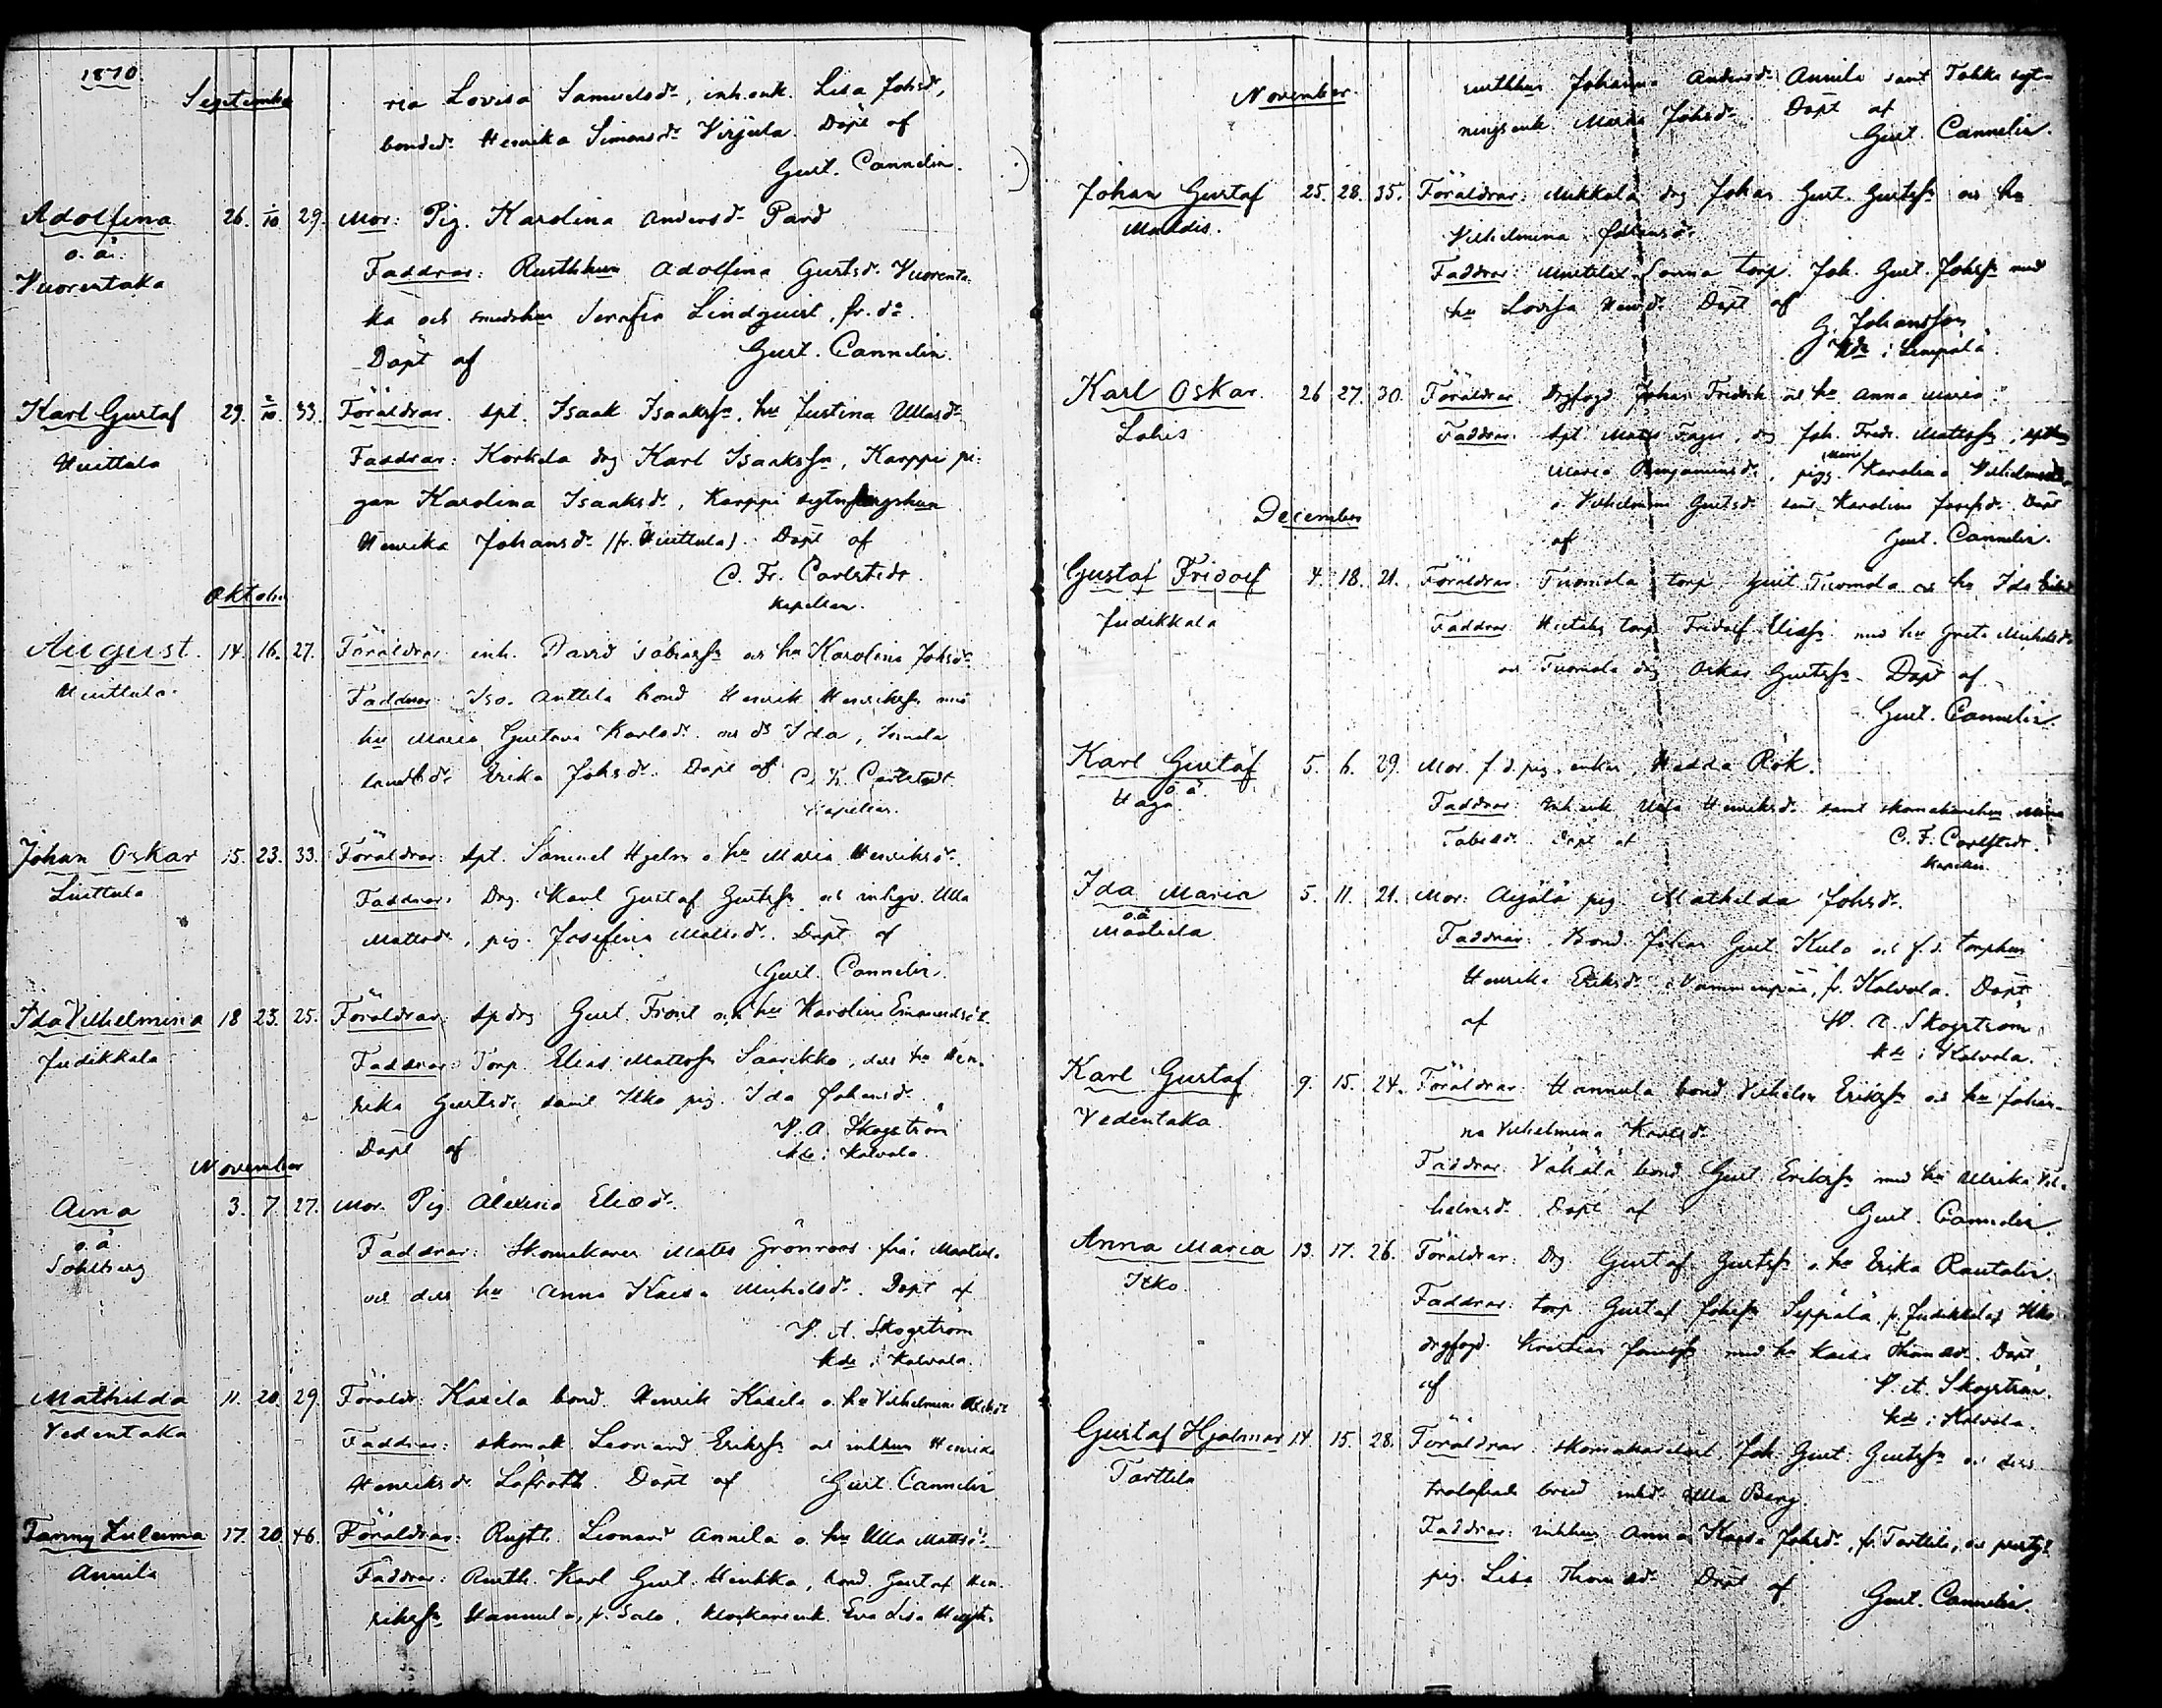 1870.
September
ria Lovisa Samuelsdr, inh.enk. Lisa Johsdr,
bondedr Henrika Simonsdr Virjula. Döpt af
Gust. Cannelin.
Adolfina 26. 1/10 29. Mor: Pig. Karolina Andersdr Pard
o.ä.
Faddrar: Rusthhun Adolfina Gustsdr Vuorenta-
Vuorentaka
ka och smedshun Serafia Lindquist, fr. do.
Döpt af Gust. Cannelin.
Karl Gustaf 29. 2/10 33. Föräldrar. Spt. Isaak Isaakssn, hu Justina Ullasdr
Huittula
Faddrar: Korkela drg Karl Isaakssn, Karppi pi-
gan Karolina Isaaksdr, Karppi
Henrika Johansdr (fr. Huittula). Döpt af
C. Fr. Carlstedt.
Kapellan.
Oktober
August. 14. 16. 27. Föräldrar inh. David Tobiassn och hu Karolina Johsdr
Huittula.
Faddrar Iso Anttila bond Henrik Henrikssn med
hu Maria Gustava Karlsdr och dr Ida,
Erika Johsdr. Döpt af C. Fr. Carlstedt
Kapellan.
Johan Oskar 15. 23. 33. Föräldrar: Spt. Samuel Hjelm o. hu Maria Henriksdr.
Linttula
Faddrar: Drg. Karl Gustaf Gustssn och Ulla
Mattsdr, pig. Josefina Mattsdr. Döpt af
Gust. Cannelin.
Ida Vilhelmina 18 23. 25. Föräldrar: Gust. Frost och hu Karolina Emanuelsdr.
Judikkala
Faddrar: Torp. Elias Mattssn Saarikko, dess hu Hen-
rika Gustsdr samt Itko pig. Ida Johansdr.
Döpt af V. A. Skogström
kde i Kalvola.
November
Aina 3. 7. 27. Mor. Pig. Alexina Eliasdr.
o.ä.
Sohlberg
Faddrar: Skomakaren Matts Grönroos från
och dess hu Anna Kaisa Michelsdr. Döpt af
V. A. Skogström
kde i Kalvola.
Mathilda 11. 20. 29. Föräldr: Kasila bond. Henrik Kasila o. hu Vilhelmina
Vedentaka
Faddrar: skomak. Leonard Erikssn och inhhun Henrika
Henriksdr Löfroth. Döpt af Gust. Cannelin
Fanny Zuleima 17. 20. 46. Föräldrar: Rusth. Leonard Annila o. hu Ulla Mattsdr
Annila
Faddrar: Rusth. Karl Gust. Heikka, bond. Gustaf Hen-
rikssn Hannula, fr. Salo, klockareenk. Eva Lisa
November.
rusthhun Johanna Andersdr Annila samt Tokka syt-
ningsenk. Maria Johsdr. Döpt af
Gust. Cannelin.
Johan Gustaf 25. 28. 35. Föräldrar: Mikkola drg Johan Gust. Gustssn och hu
Maldis.
Vilhelmina Johansdr.
Faddrar: torp. Joh. Gust. Johssn med
hu Lovisa Henrdr. Döpt af
G. Johansson
kde i Lempälä.
Karl Oskar. 26 27. 30. Föräldrar Drgfogd. Johan Fredrik och hu Anna Maria
Lahis
Faddrar: Spt. Matts Fager, drg Joh. Fredr. Mattssn,
Maria Benjaminsdr, pigg. Karolina Vilhelmsdr
o. Vilhelmina Gustsdr samt Karolina Josefsdr. Döpt
af Gust. Cannelin.
December
Gustaf Fridolf 4. 18. 21. Föräldrar: Tuomola torp. Gust. Tuomola och hu Ida
Judikkala
Faddrar: torp. Fridolf Eliassn med hu Greta Michelsdr
och Tuomola drg Oskar Gustssn. Döpt af
Gust. Cannelin
Karl Gustaf 5. 6. 29. Mor. f.d. pig. enkan Hedda Rök.
o.ä.
Haga
Faddrar: inh.enk. Ulla Henriksdr samt skomakarehun
Tobsdr. Döpt af C. F. Carlstedt.
Kapellan.
Ida Maria 5. 11. 21. Mor: Äijälä pig. Mathilda Johsdr.
o.ä.
Maatiala
Faddrar: Bond. Johan Gust. Kulo och f.d. torphun
Henrika Eriksdr, fr. Kalvola. Döpt
af V. A. Skogström
kde i Kalvola.
Karl Gustaf 9. 15. 24. Föräldrar: Hannula bond. Vilhelm Erikssn och hu Johan-
Vedentaka
na Vilhelmina Karlsdr
Faddrar: Vähälä bond. Gust. Erikssn med hu Ulrika Vil-
helmsdr. Döpt af Gust. Cannelin.
Anna Maria 13. 17. 26. Föräldrar: Drg. Gustaf Gustssn o. hu Erika Rautalin.
Itko.
Faddrar: torp. Gustaf Johssn Seppälä, fr. Judikkala, Itko
drgfogd. Kristian med hu Kaisa Thomasdr. Döpt
af V. A. Skogström.
kde i Kalvola.
Gustaf Hjalmar 14. 15. 28. Föräldrar: Joh. Gust. Gustssn och dess
Tarttila
trolofvade brud Ulla Berg.
Faddrar: inhhun Anna Kaisa Johsdr, fr. Tarttila, och
pig. Lisa Thomasdr. Döpt af Gust. Cannelin.